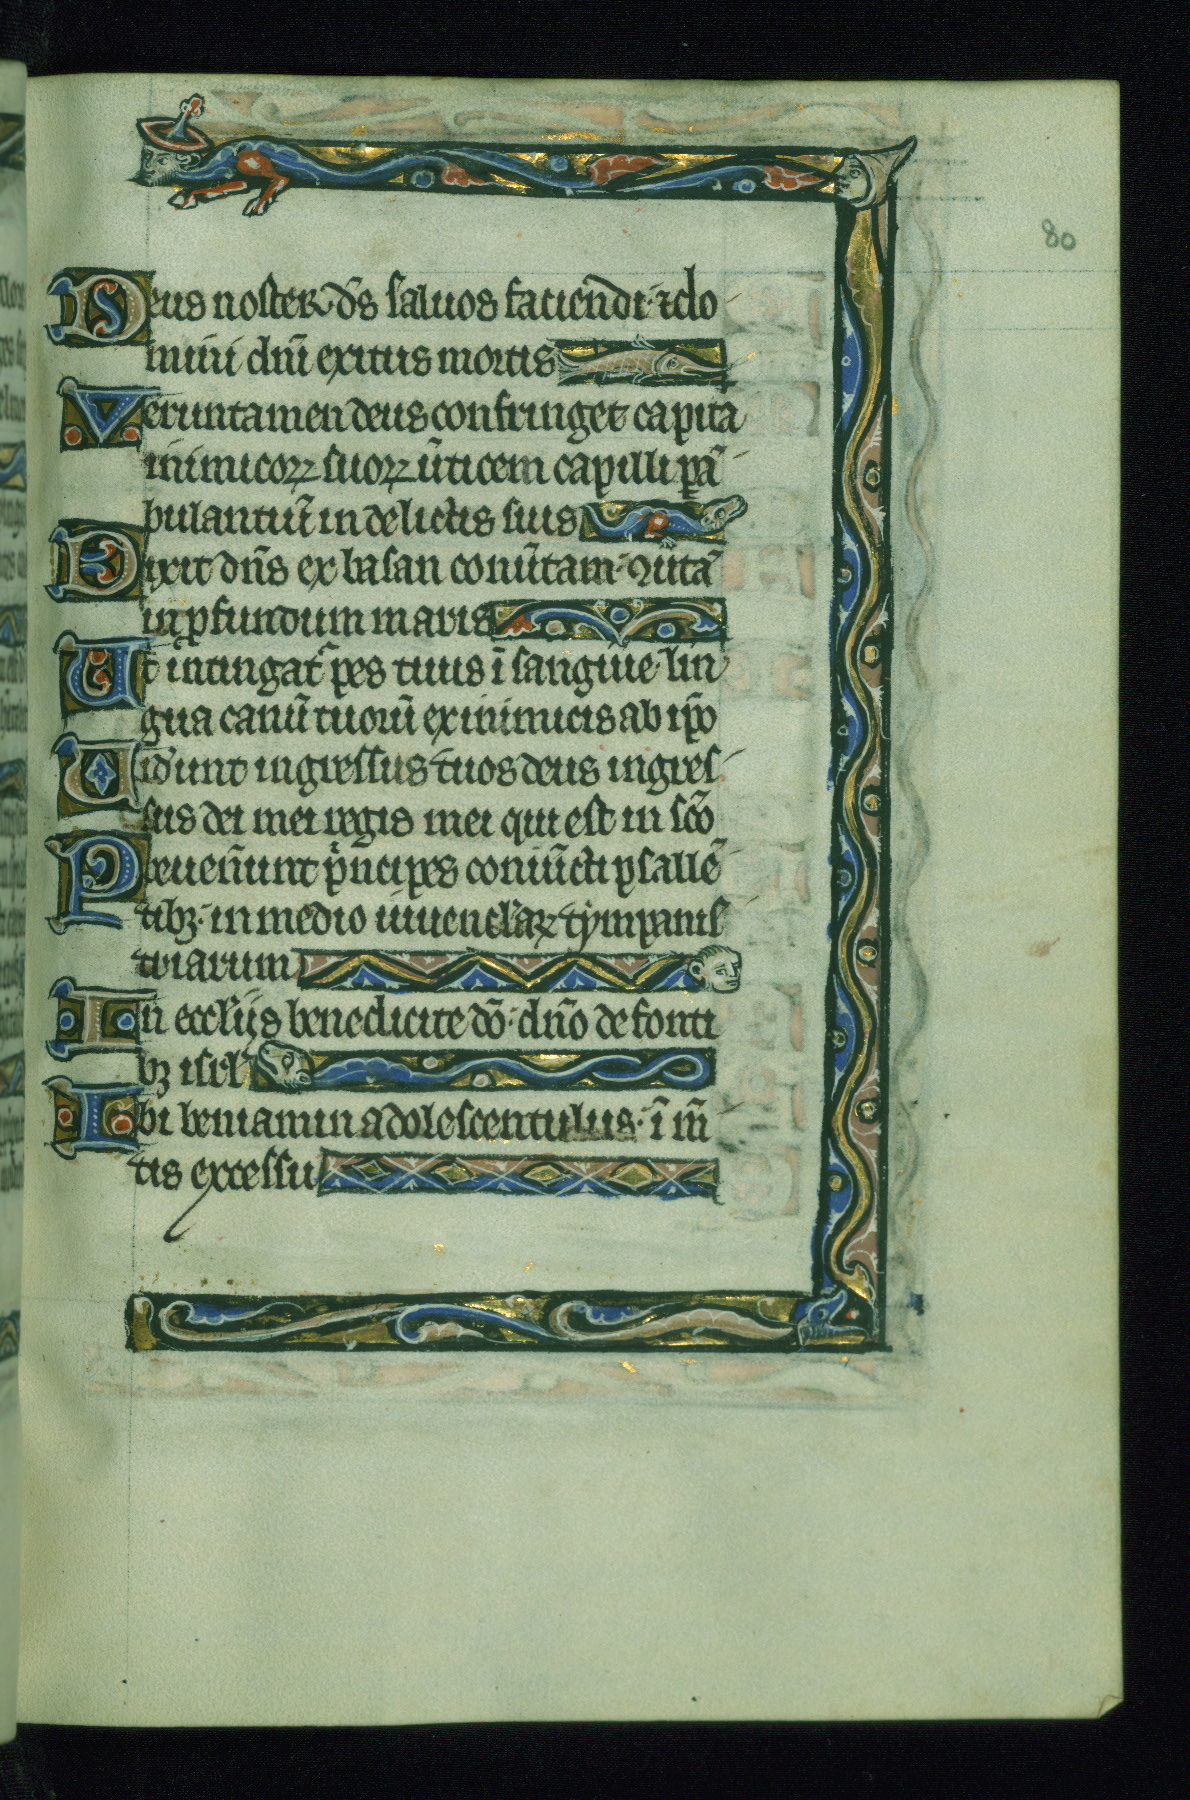 80
Deus noster d̄s saluos faciendi· ⁊ do
mini dn̄i exitus mortis
Veruntamen deus confringet capita
inimicoꝝ suoꝝ ũticem capilli p̱ā
bulantiũ in delictis suis
Dixit dn̄s ex basan conũtam· ꝯũtā
in ꝓfundum maris
Ut intingat᷑ pes tuus ī sanguine· lin
gua canũ tuorũ ex inimicis ab ip̄o
Uiderunt ingressus tuos deus ingres
sus dei mei regis mei qui est in sc̄o
Preuen̄unt pⁱncipes coniũcti psallē
tibꝫ· in medio iuuencl̄aꝝ tẏmpanis
triarum
In eccl̄ijs benedicite dō· dn̄o de fonti
bꝫ isrl̄
Ibi beniamin adolescentulus· ī m̄
tis excessu